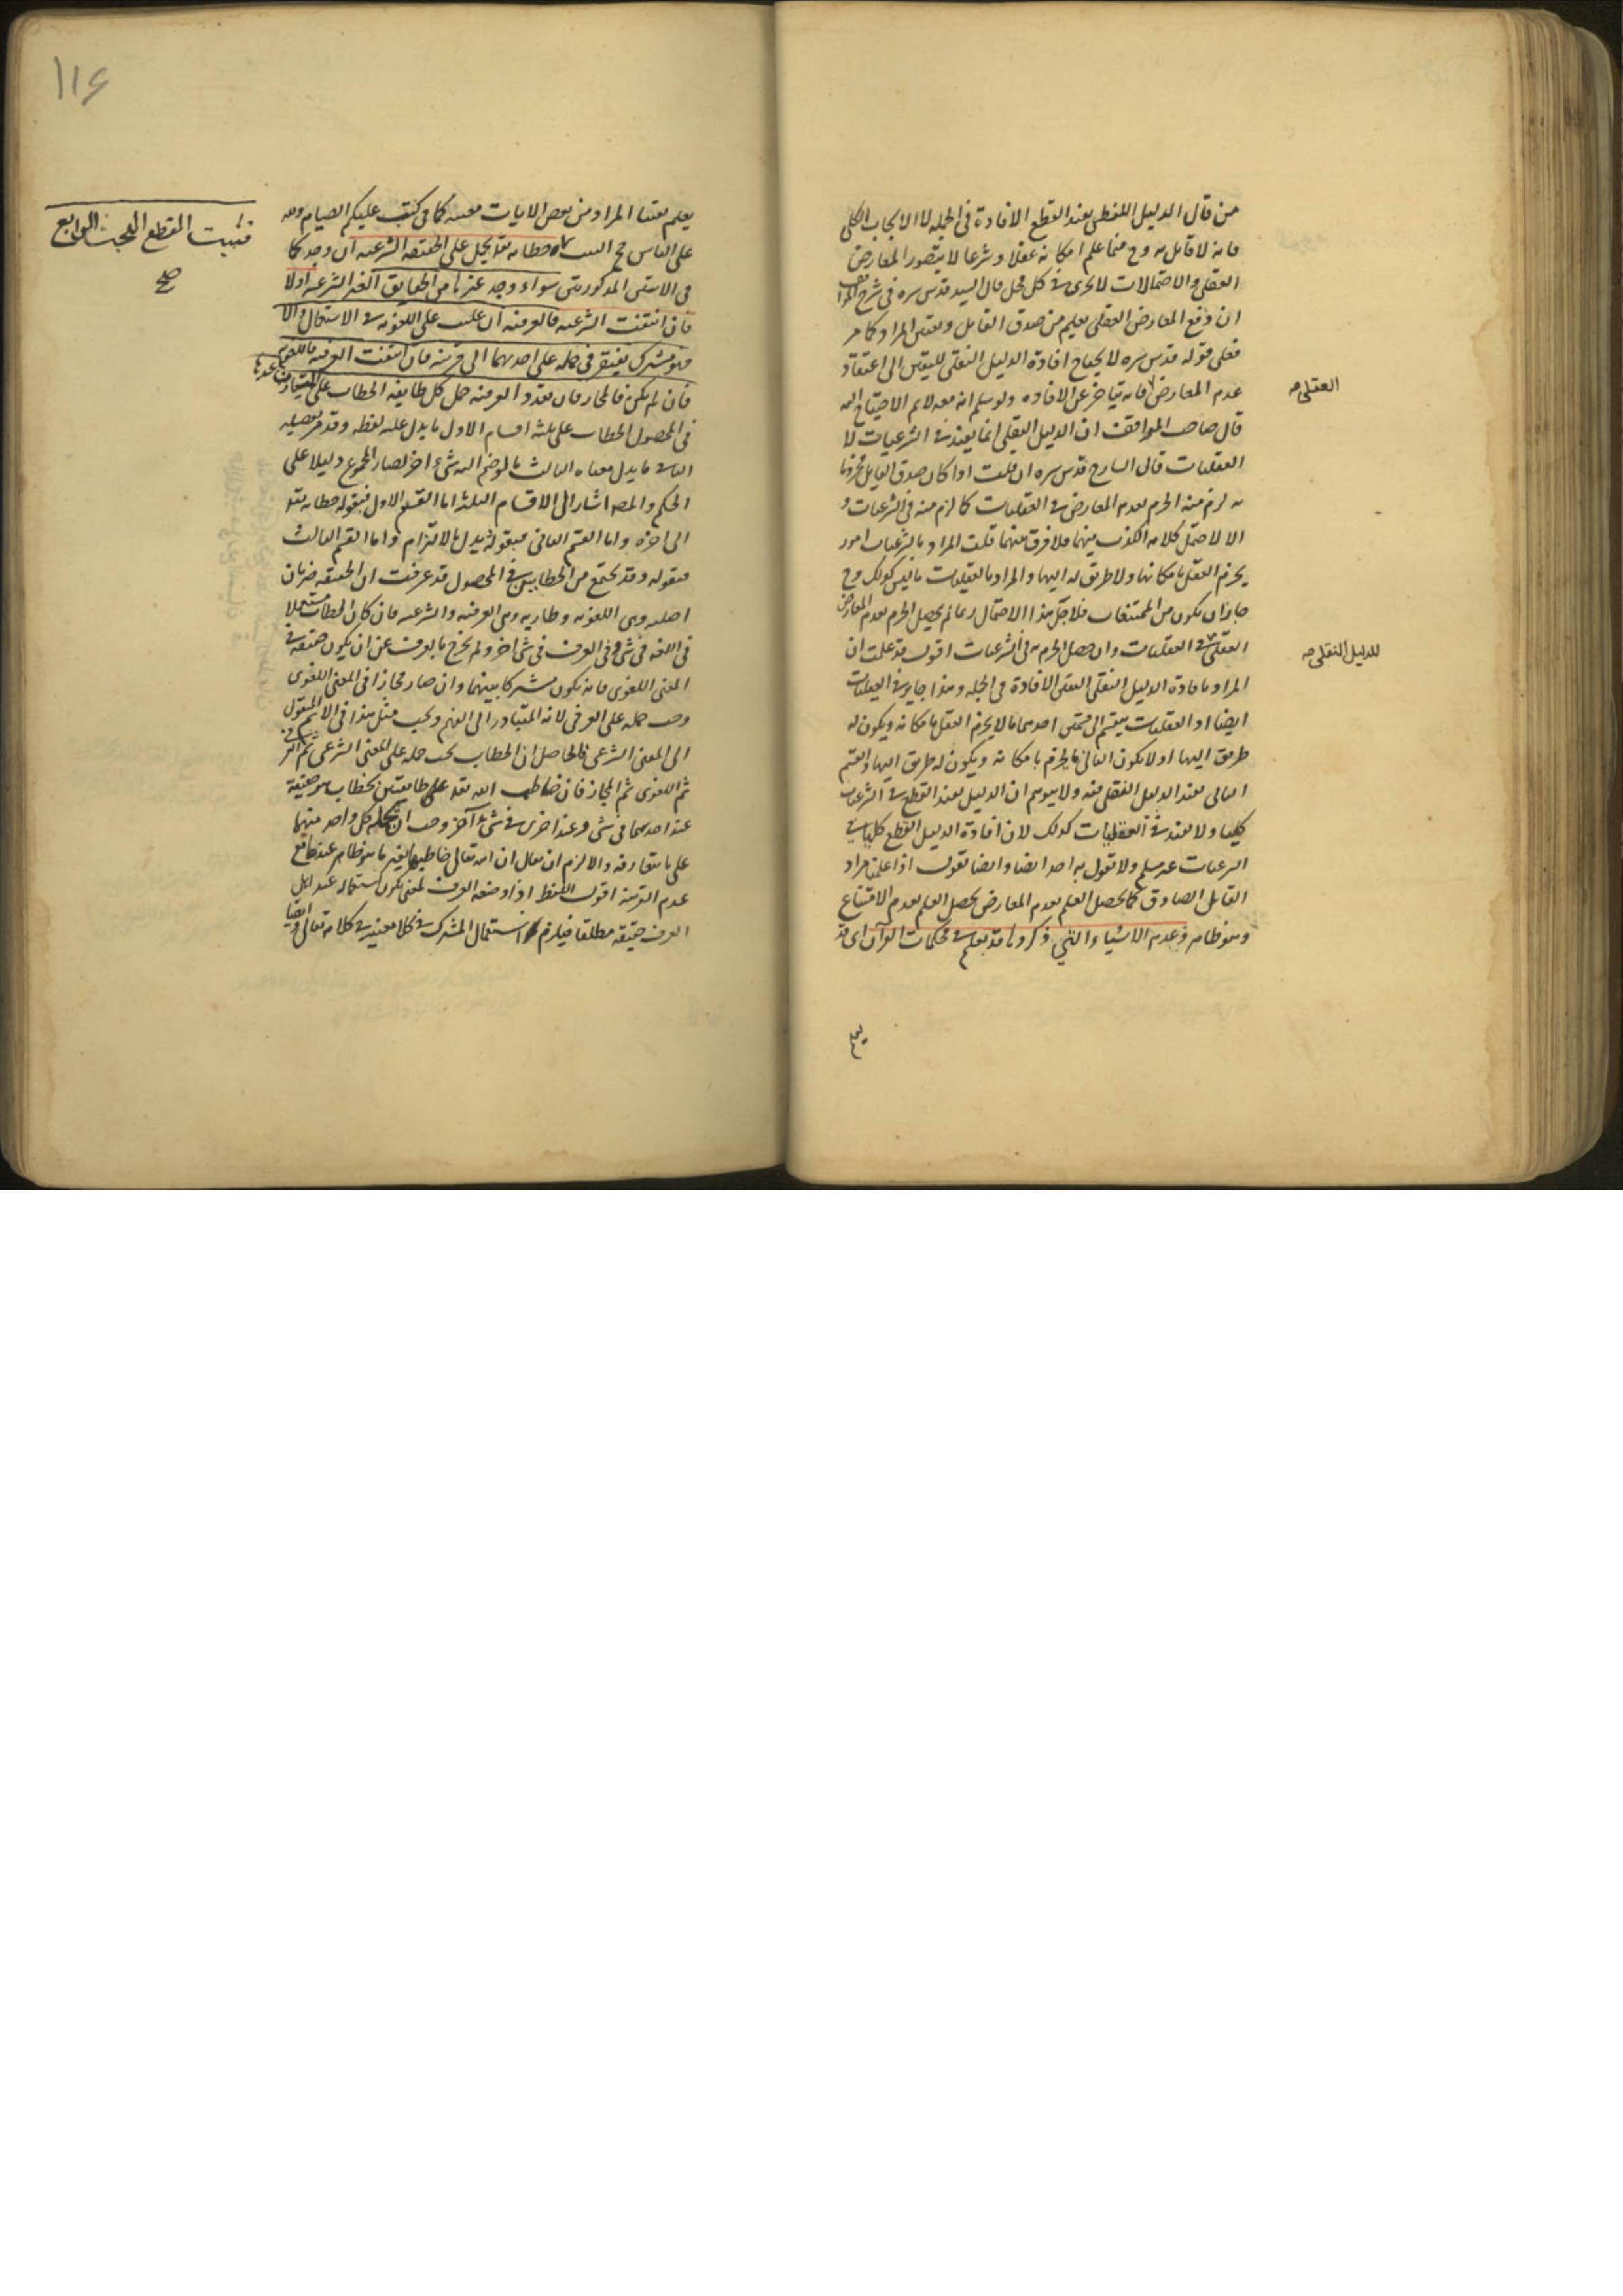 من قال الدليل اللفظى يفيد القطع الافادة فى الجمله لا الايجاب الكلى
فانه لا قايل به وح فما علم امكانه عقلا وشرعا لا يتصور المعارض
العقلى والاحتمالات لا تجرى فى كل محل قال السيد قدس سره فى شرح
ان دفع المعارض العقلى يعلم من صدق القايل وتعين المراد كما مر
فعلى قوله قدس سره لا يحتاج افادة الدليل النقلى لليقين الى اعتقاد
عدم المعارض فانه يتاخر عن الافاده ولو سلم انه معه لا نم الاحتياج اليه
العقلى صه
قال صاحب المواقف ان الدليل النقلى انما يفيد فى الشرعيات لا
العقليات قال الشارح قدس سره ان قلت اذا كان صدق القايل مجزوما
به لزم منه الجزم بعدم المعارض فى العقليات كما لزم منه فى الشرعيات و
الا لاحتمل كلامه الكذب فيهما فلا فرق بينهما قلت المراد بالشرعيات امور
يجزم العقل بامكانها ولا طريق له اليها والمراد بالعقليات ما ليس كذلك وح
جاز ان يكون من الممتنعات فلاجل هذا الاحتمال ربما لم يحصل الجزم بعدم المعارض
العقلى فى العقليات وان حصل الجزم به فى الشرعيات اقول قد علمت ان
للدليل النقلى صه
المراد بافادة الدليل النقلى اليقين الافادة فى الجمله وهذا جايز فى العقليات
ايضا او العقليات ينقسم الى قسمين احدهما ما لا يجزم العقل بامكانه ويكون له
طريق اليها او لا يكون الثانى ما يجزم بامكانه ويكون له طريق اليها والقسم
الثانى يفيد الدليل النقلى فيه ولا يتوهم ان الدليل يفيد القطع فى الشرعيات
كليا ولا يفيد فى العقليات كذلك لان افادة الدليل القطع كليا فى
الشرعيات غير مسلم ولا يقول به احد ايضا وايضا نقول اذا علمنا مراد
القايل الصادق كما يحصل العلم بعدم المعارض يحصل العلم بعدم الامتناع
وهو ظاهر وعدم الاشياء التى ذكروها قد يعلم فى محكمات القرآن اى قد
يعلم
١١٤
يعلم يقينا المراد من بعض الايات معينه كما فى كتب عليكم الصيام ولله
على الناس حج البيت خطابه تعالى يحمل على الحقيقه الشرعيه ان وجد كما
فى الايتين المذكورتين سواء وجد غيرها من الحقايق الغير الشرعيه اولا
فان انتفت الشرعيه فالعرفيه ان غلبت على اللغويه فى الاستعمال والا
فهو مشترك يفتقر فى حمله على احدهما الى قرينه فان انتفت العرفيه فاللغويه
فان لم يكن فالمجاز فان تعدد العرفيه حمل كل طايفه الخطاب على المتعارف عندها
فى المحصول الخطاب على ثلثه اقسام الاول ما يدل عليه لفظه وقد مر تفصيله
الثانى ما يدل معناه الثالث ما لو ضم اليه شئ اخر لصار المجموع دليلا على
الحكم والمصه اشار الى الاقسام الثلثه اما القسم الاول فبقوله خطابه تعالى
الى اخره واما القسم الثانى فبقوله يدل بالالتزام واما القسم الثالث
فبقوله وقد يجتمع من الخطابين فى المحصول قد عرفت ان الحقيقه ضربان
اصليه وهى اللغويه وطاريه وهى العرفيه والشرعيه فان كان الخطاب مستعملا
فى اللغه فى شئ وفى العرف فى شئ اخر ولم يخرج بالعرف عن ان يكون حقيقه فى
المعنى اللغوى فانه يكون مشتركا بينهما وان صار مجازا فى المعنى اللغوى
وجب حمله على العرفى لانه المتبادر الى الفهم ويجب مثل هذا فى الاسم المنقول
الى المعنى الشرعى فالحاصل ان الخطاب يجب حمله على المعنى الشرعى ثم العرفى
ثم اللغوى ثم المجاز فان خاطب الله تعالى طايفتين بخطاب هو حقيقة
عند احدهما فى شئ وعند اخرى فى شئ آخر وجب ان يحمله كل واحد منهما
على ما يتعارفه والا لزم ان يقال ان الله تعالى خاطبها بغير ما هو ظاهر عندها مع
عدم القرينه اقول اللفظ اذا وضعه العرف لمعنى يكون استعماله عند اهل
العرف حقيقه مطلقا فيلزم استعمال المشترك فى كلا معنييه فى كلامه تعالى وايضا
فيثبت القطع المبحث الرابع
صح